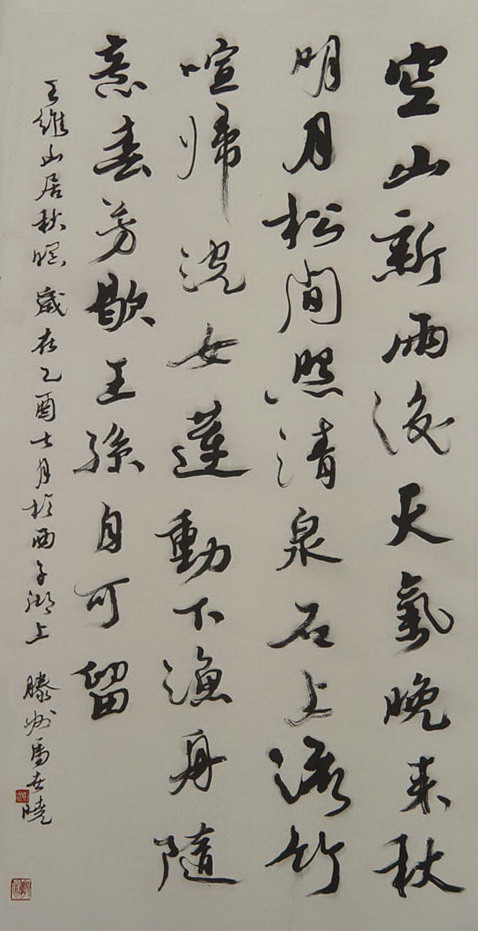 空山新雨後天氣晚来秋
明月松間照清泉石上流竹
喧歸浣女蓮動下漁舟隨
意春芳歇王孫自可留
王維山居秋暝 歲在乙酉七月於西子湖上 滕州馬世曉